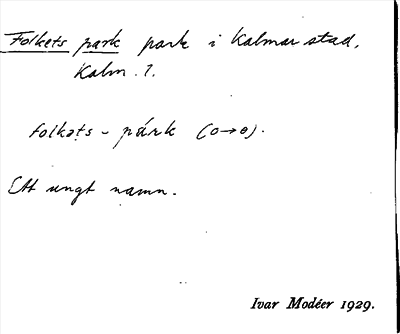 Folkets park park i Kalmar stad,
Kalm. l.
folkəts - párk (o→ɵ).
Ett ungt namn.
Ivar Modéer 1929.